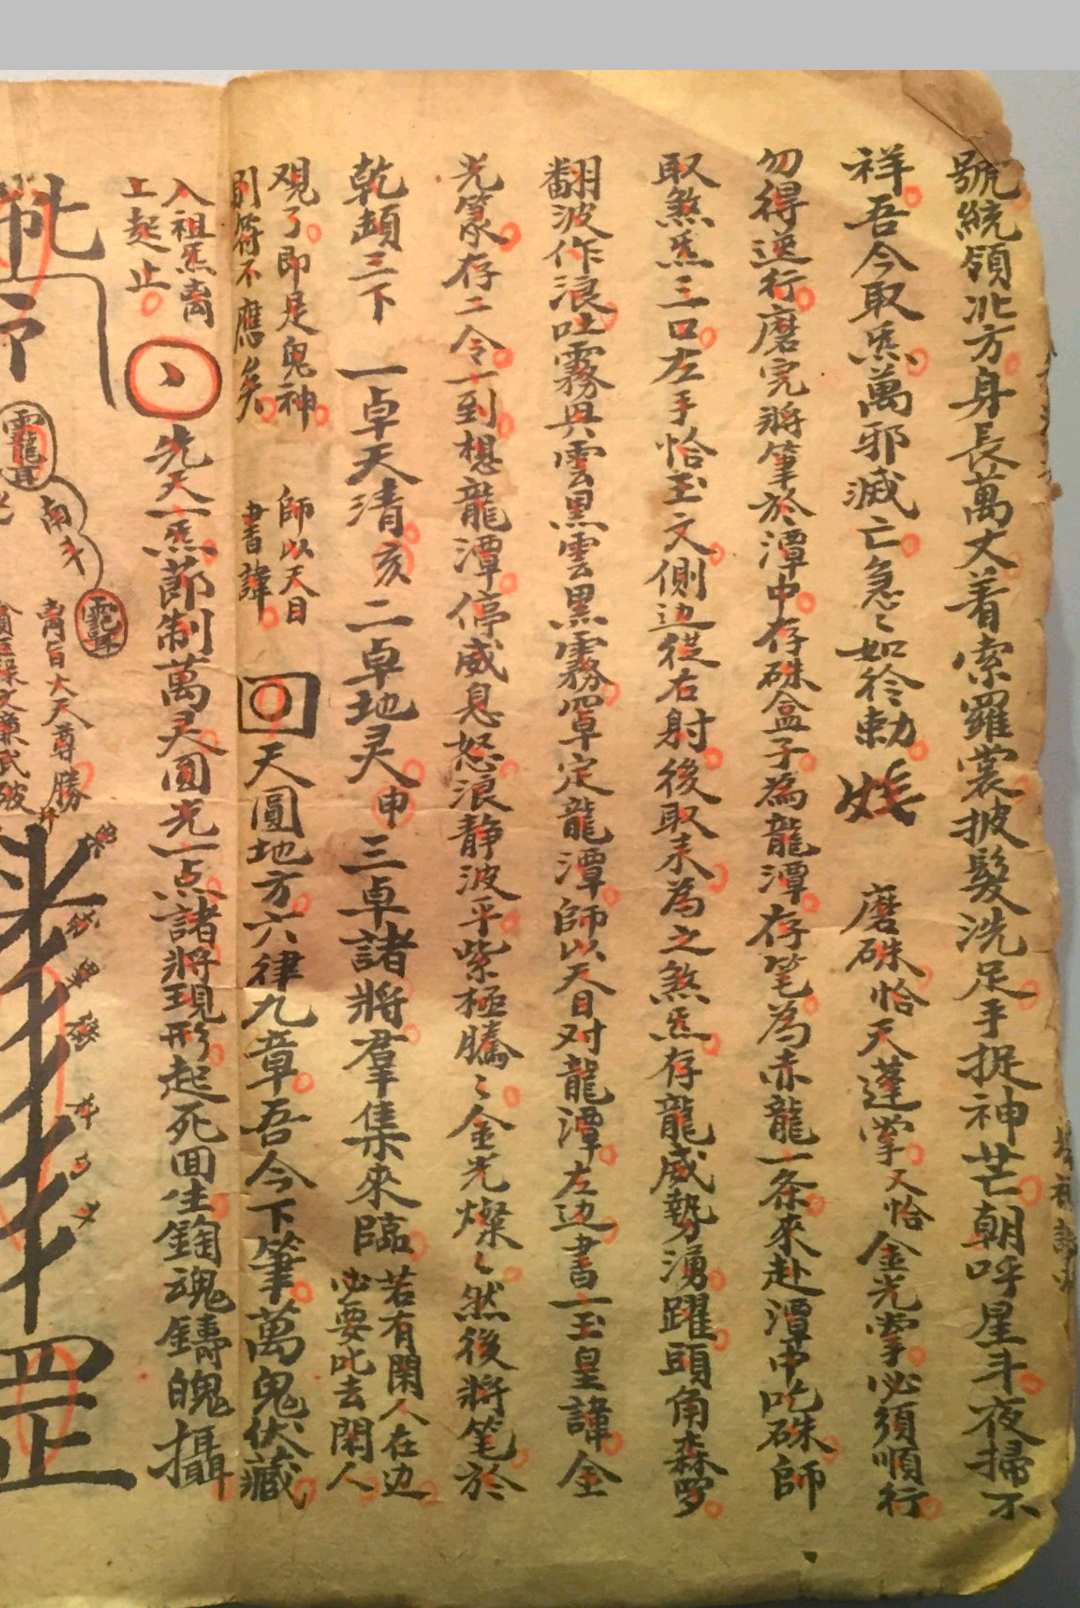 號統領北方身長萬丈着索羅裳披髮洗足手捉神芒朝呼星斗夜掃不
祥吾今取炁萬邪滅亡急〻如律勅 磨硃恰天蓬掌又恰金光掌必須順行
勿得逆行磨完將筆於潭中存硃盒子為龍潭存笔為赤龍一条來赴潭中吃硃師
取煞炁三口左手恰玉文側边從右射後取来為之煞炁存龍威勢湧躍頭角森罗
翻波作浪吐霧興雲黑雲黑霧四卓定龍潭師以天目对龍潭左边書一玉皇諱全
光篆存二令一到想龍潭停威息怒浪静波平紫極騰〻金光燦〻然後将笔於
乾顛三下 一卓天清亥二卓地灵申三卓諸將羣集來臨若有閑人在边
必要叱去閑人
观了即是鬼神 師以天目
別符不應矣 書諱 天圓地方六律九章吾今下筆萬鬼伏藏
入祖炁离
上起止 先天一炁節制萬灵圓光一点諸將現形起死回生鎔魂鑄魄攝
南斗
离旨大天尊勝
罡